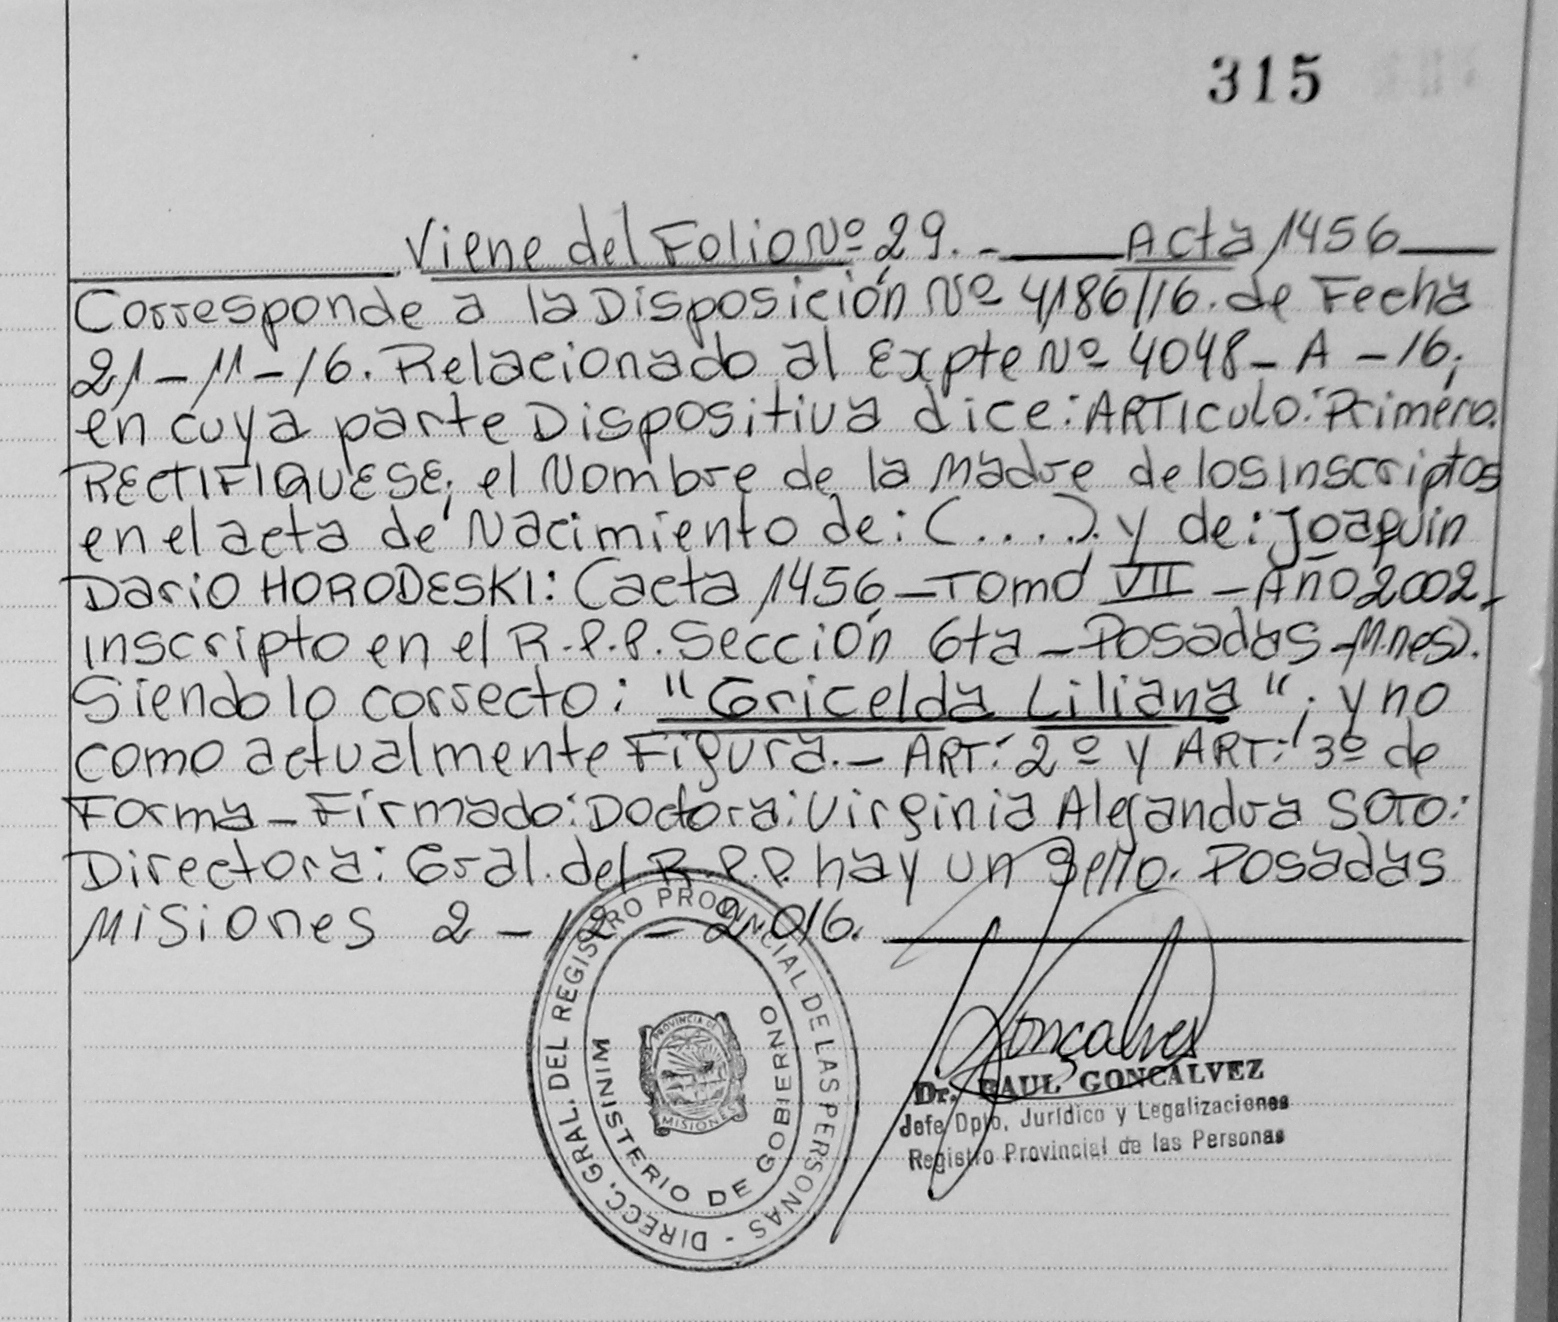 315
Viene del Folio Nº 29.- Acta 1456
Corresponde a la Disposición Nº 4186/16. de Fecha
21-11-16. Relacionado al Expte Nº 4048-A-16;
en cuya parte Dispositiva dice: ARTICULO: Primero.
RECTIFIQUESE; el Nombre de la Madre de los Inscriptos
en el acta de Nacimiento de: (....). y de: Joaquin
Dario HORODESKI: (acta 1456-Tomo VII-Año 2002,
inscripto en el R.P.P. Sección 6ta-Posadas-Mnes).
Siendo lo correcto: "Gricelda Liliana"; y no
como actualmente Figura.- ART: 2º y ART: 3º de
Forma-Firmado: Doctora: Virginia Alejandra SOTO:
Directora: Gral. del R.P.P. hay un Sello. Posadas
Misiones 2-12-2016.
DIRECC. GRAL. DEL REGISTRO PROVINCIAL DE LAS PERSONAS -
MINISTERIO DE GOBIERNO
PROVINCIA DE
MISIONES
Gonçalves
Dr. RAUL GONCALVEZ
Jefe Dpto. Jurídico y Legalizaciones
Registro Provincial de las Personas